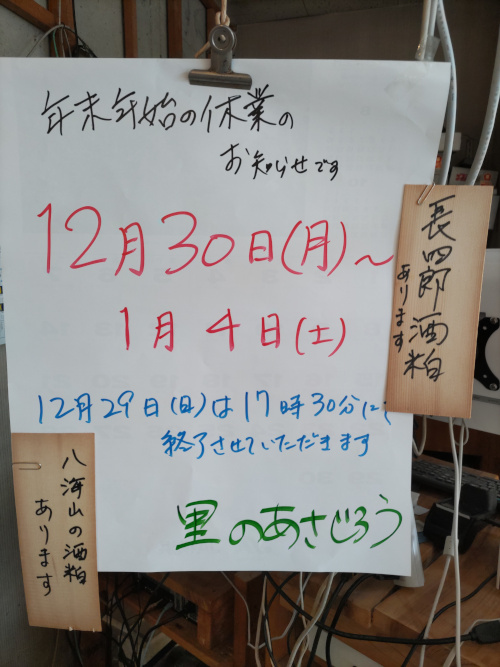 年末年始の休業の
お知らせです
12月30日(月)~
1月4日(土)
12月29日(日)は17時30分にて
終了させていただきます
里のあさじろう
長四郎酒粕
あります
八海山の酒粕
あります